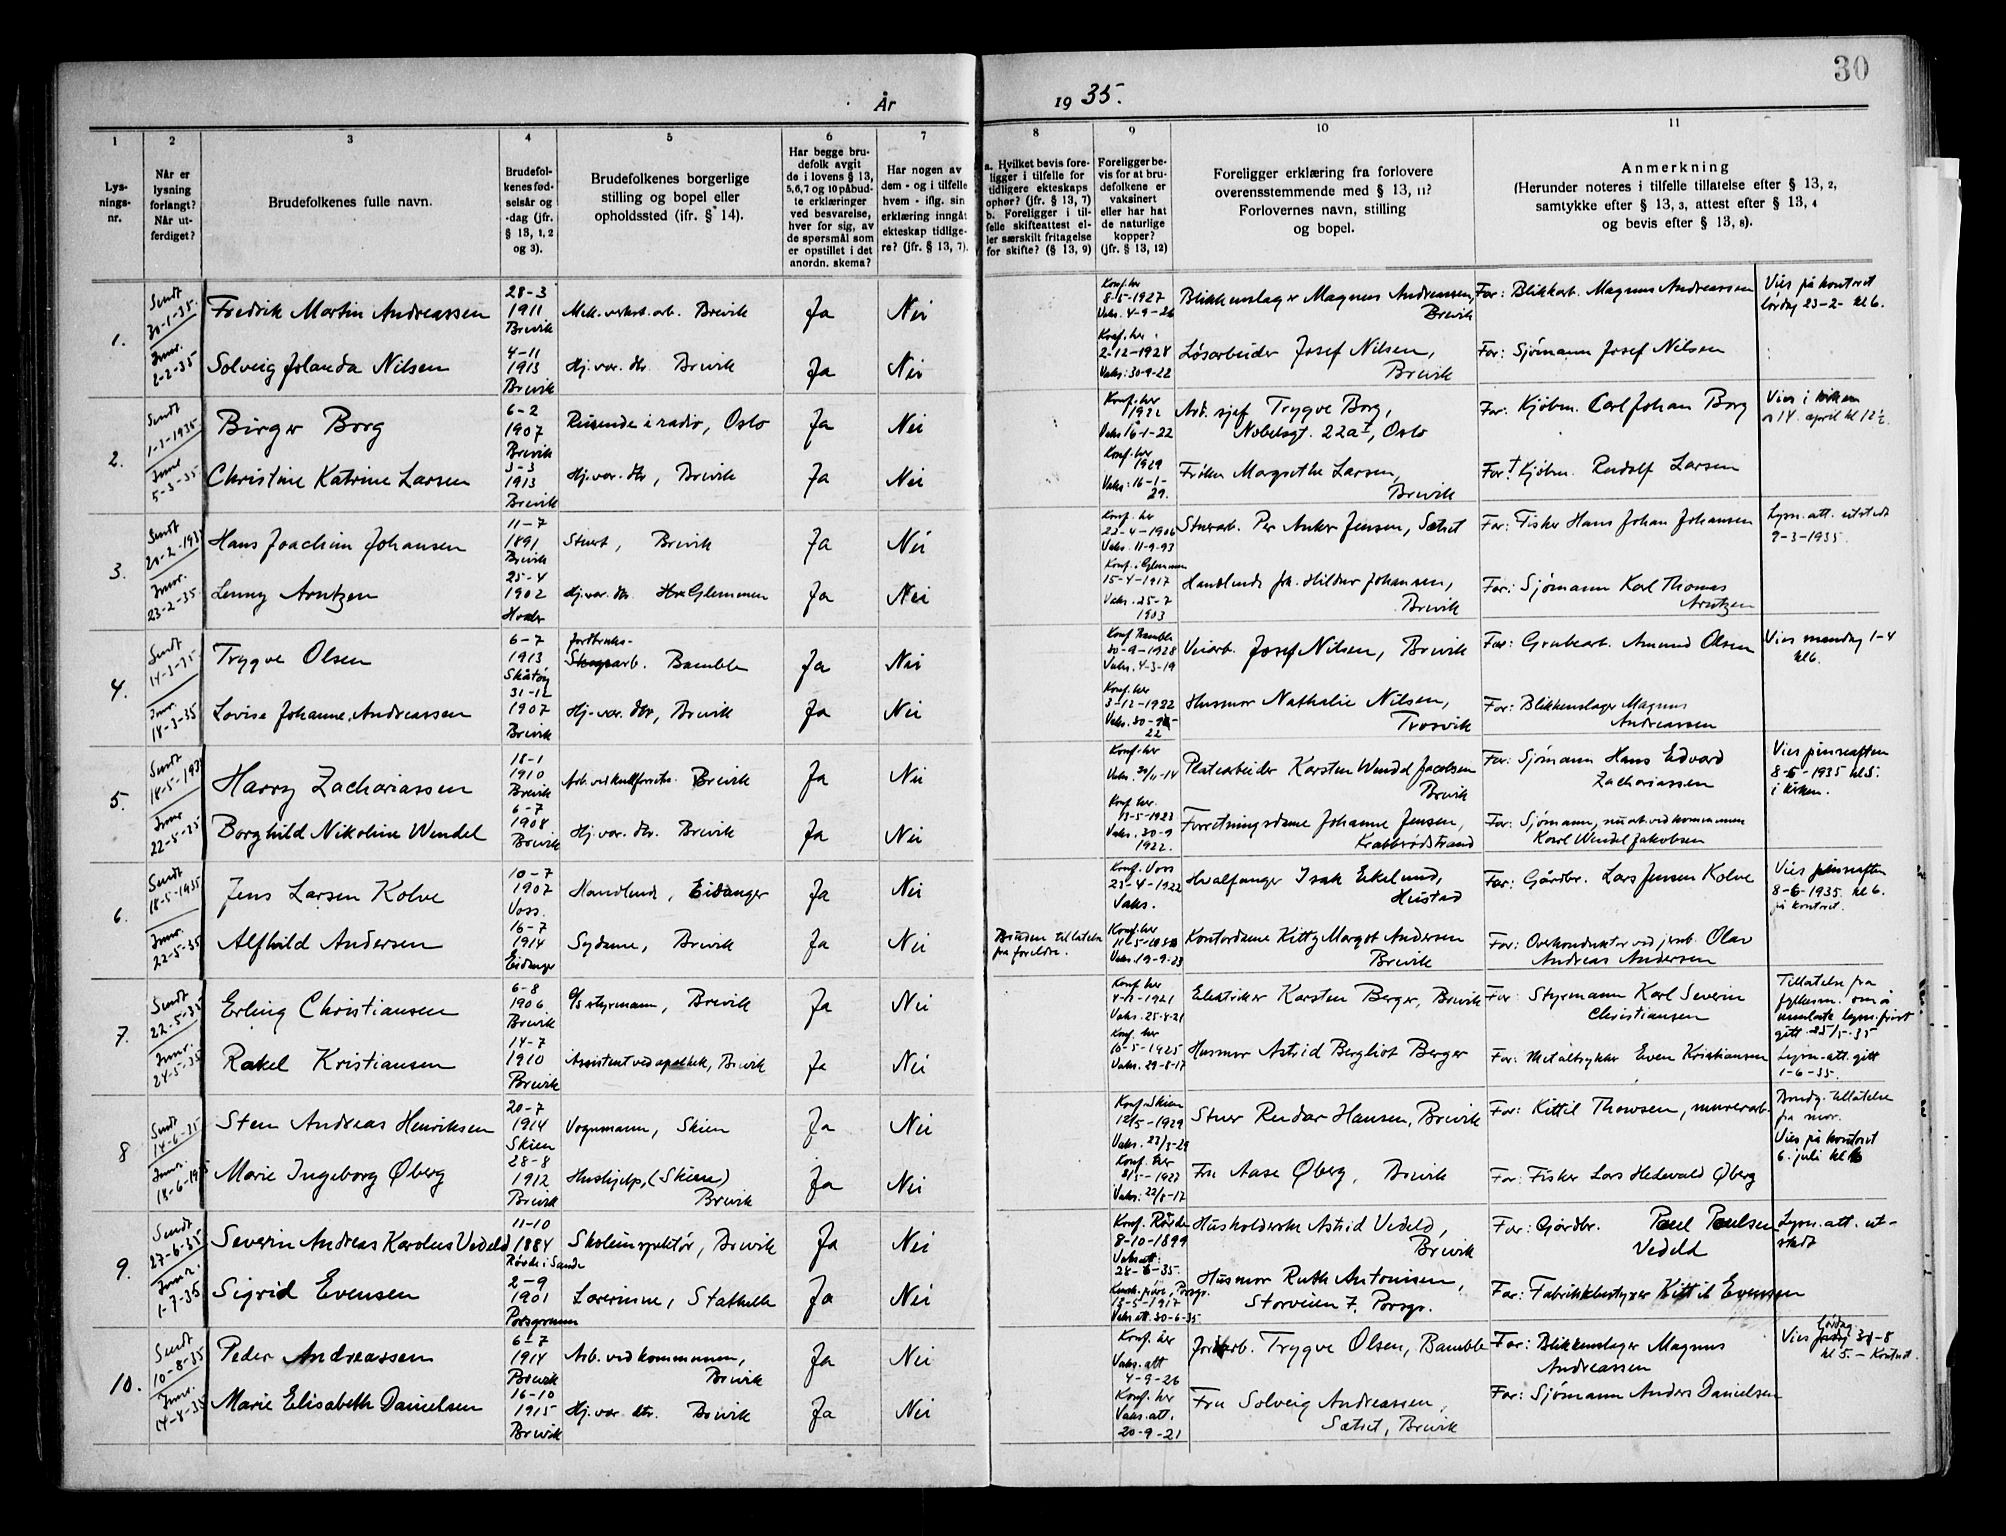 30
År
19 35.
1
2
3
4
5
6
7
8
9
10
11
Lysnings-
nr.
Når er
lysning
forlangt?
Når ut-
ferdiget?
Brudefolkenes fulle navn.
Brudefol-
kenes fød-
selsår og
-dag (jfr.
§ 13, 1, 2
og 3).
Brudefolkenes borgerlige
stilling og bopel eller
opholdssted (jfr. § 14).
Har begge bru-
defolk avgit
de i lovens § 13,
5,6,7 og 10 påbud-
te erklæringer
ved besvarelse,
hver for sig, av
de spørsmål som
er opstillet i det
anordn. skema?
Har nogen av
dem - og i tilfelle
hvem - iflg. sin
erklæring inngått
ekteskap tidlige-
re? (jfr. § 13, 7).
a. Hvilket bevis fore-
ligger i tilfelle for
tidligere ekteskaps
ophør? (jfr. § 13, 7)
b. Foreligger i til-
felle skifteattest el-
ler særskilt fritagelse
for skifte? (§ 13, 9)
Foreligger be-
vis for at bru-
defolkene er
vaksinert
eller har hat
de naturlige
kopper?
(jfr. § 13, 12)
Foreligger erklæring fra forlovere
overensstemmende med § 13, 11?
Forlovernes navn, stilling
og bopel.
Anmerkning
(Herunder noteres i tilfelle tillatelse efter § 13, 2,
samtykke efter § 13, 3, attest efter § 13, 4
og bevis efter § 13, 8).
1.
Sendt
30-1-35.
Innr.
2-2-35
Fredrik Martin Andreassen
28-3
1911
Brevik
Mek. verkst. arb. Brevik
Ja
Nei
Konf. her
8-5-1927
Vaks. 4-9-26
Blikkenslager Magnus Andreassen,
Brevik
Far: Blikkarb. Magnus Andreassen
Vies på kontoret
lørdag 23-2- kl 6.
Solveig Jolanda Nilsen
4-11
1913
Brevik
Hj. vær. dtr. Brevik
Ja
Nei
Konf. her
2-12-1928
Vaks: 30-9-22
Løsarbeider Josef Nilsen,
Brevik
Far: Sjømann Josef Nilsen
2.
Sendt
1-3-1935
Innr.
5-3-35
Birger Borg
6-2
1907
Brevik
Reisende i radio, Oslo
Ja
Nei
Konf. her
1922
Vaks 16-1-22
Avd. sjef Trygve Borg,
Nobelsgt. 22a I, Oslo
Far: Kjøbm. Carl Johan Borg
Vies i kirken
14. april kl 12½
Christine Katrine Larsen
3-3
1913
Brevik
Hj. vær. dtr, Brevik
Ja
Nei
Konf. her
1929
Vaks: 16-1-
29.
Frøken Magnethe Larsen,
Brevik
Far: † Kjøbm. Rudolf Larsen
3.
Sendt
20-2-1935
Innr.
23-2-35
Hans Joachim Johansen
11-7
1891
Brevik
Stuert, Brevik
Ja
Nei
Konf. her
22-4-1906
Vaks. 11-9-93
Stuearb. Per Anker Jensen, Sætret
Far: Fisker Hans Johan Johansen
Lysn. att. utstedt
9-3-1935.
Lenny Arntzen
25-4
1902
Hvaler
Hj. vær. dtr. Glemmen
Ja
Nei
Konf. i Glemmen
15-4-1917
Vaks. 25-7
1903
Handlende fr. Hildur Johansen,
Brevik
Far: Sjømann Karl Thomas
Arntzen
4.
Sendt
14-3-35
Innr.
18-3-35
Trygve Olsen
6-7
1913
Skåtøy
Jordbruks-
Skogsarb. Bamble
Ja
Nei
Konf. Bamble
30-9-1928
Vaks. 4-3-19
Veiarb. Josef Nilsen, Brevik
Far: Grubearb. Amund Olsen
Vies mandag 1-4
kl 6.
Lovise Johanne Andreassen
31-12
1907
Brevik
Hj. vær. dtr, Brevik
Ja
Nei
Konf. her
3-12-1922
Vaks. 30-9-
22
Husmor Nathalie Nilsen,
Trosvik
Far: Blikkenslager Magnus
Andreassen
5.
Sendt
18-5-1935
Innr
22-5-35
Harry Zachariassen
18-1
1910
Brevik
Arb. ved kullforretn. Brevik
Ja
Nei
Konf. her
Vaks. 20/11-14
Platearbeider Karsten Wendel Jacobsen
Brevik
Far: Sjømann Hans Edvard
Zachariassen
Vies pinseaften
8-6-1935 kl 5.
i kirken.
Borghild Nikoline Wendel
6-7
1908
Brevik
Hj. vær. dtr. Brevik
Ja
Nei
Konf. her.
13-5-1923
Vaks. 30-9
1922.
Forretningsdame Johanne Jensen,
Krabberødstrand
Far: Sjømann, nu arb. ved kommunen
Karl Wendel Jakobsen
6.
Sendt
18-5-1935
Innr.
22-5-35
Jens Larsen Kolve
10-7
1907
Voss.
Handlende, Eidanger
Ja
Nei
Konf. Voss
23-4-1922
Vaks.
Hvalfanger Isak Ekelund,
Hustad
Far: Gårdbr. Lars Jensen Kolve
Vies pinseaften
8-6-1935. kl 6.
på kontoret.
Alfhild Andersen
16-7
1914
Eidanger
Sydame, Brevik
Ja
Nei
Bruden tillatelse
fra foreldre.
Konf. her
Vaks. 19-9-23
Kontordame Kitty Margot Andersen
Brevik
Far: Overkonduktør ved jernb. Olav
Andreas Andersen
7.
Sendt
22-5-35
Innr.
24-5-35
Erling Christiansen
6-8
1906
Brevik
styrmann, Brevik
Ja
Nei
Konf. her
4-12-1921
Vaks. 25-4-21
Elektriker Karsten Berger, Brevik
Far: Styrmann Karl Severin
Christiansen
Tillatelse fra
fylkesm. om å
unnlate lysn. frist
gitt 25/5-35
Rakel Kristiansen
14-7
1910
Brevik
Assistent ved apothek, Brevik
Ja
Nei
Konf. her
10-5-1925
Vaks. 29-8-17
Husmor Astrid Bergliot Berger
Far: Metaltrykker Even Kristiansen
Lysn. att. gitt
1-6-35.
8
Sendt
14-6-35
Innr.
18-6-1935
Sten Andreas Henriksen
20-7
1914
Skien
Vognmann, Skien
Ja
Nei
Konf. Skien
12/5-1929
Vaks. 22/3-29
Stuer Reidar Hansen, Brevik
Far: Kittil Thowsen, murerarb.
Brudg. tillatelse
fra mor.
Vies på kontoret
6. juli kl 6
Marie Ingeborg Øberg
28-8
1912
Brevik
Hushjelp, (Skien)
Brevik
Ja
Nei
Konf. her
Fru Aase Øberg, Brevik
Far: Fisker Lars Hedevald Øberg
9.
Sendt
27-6-35
Innr.
1-7-35
Severin Andreas Karolus Vedeld
11-10
1884
Røvde i Sande
Skoleinspektør, Brevik
Ja
Nei
Konf. Røvde
8-10-1899
Vaks att:
28-6-35.
Husholderske Astrid Vedeld,
Brevik
Far: Gårdbr. Paul Paulsen
Vedeld
Lysn. att. ut-
stedt
Sigrid Evensen
2-9
1901
Porsgrunn
Lærerinne, Stathelle
Ja
Nei
13-5-1917
Vaks att. 30-6-35
Husmor Ruth Antonisen,
Storveien 7, Porsgr.
Far: Fabrikkbestyrer Kittil Evensen
10.
Sendt
10-8-35
Innr.
14-8-35
Peder Andreassen
6-7
1914
Brevik
Arb. ved kommunen,
Brevik
Ja
Nei
Konf. her
Vaks. att
4-9-26
Jordarb. Trygve Olsen, Bamble
Far: Blikkenslager Magnus
Andreassen
lørdag
Vies 31-8
kl 5. - Kontoret.
Marie Elisabeth Danielsen
16-10
1915
Brevik
Hj. vær. dtr. Brevik
Ja
Nei
Konf. her
Vaks. att.
20-9-21
Fru Solveig Andreassen,
Sætret, Brevik
Far: Sjømann Anders Danielsen